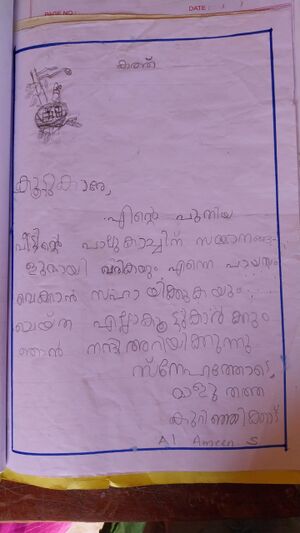 PAGE NO.:
DATE: / /
കത്ത്
കൂട്ടുകാരേ,
എന്റെ പുതിയ
വീട്ടിന്റെ പാലുകാച്ചിന് സമ്മാനങ്ങ
ളുമായി വരികയും എന്നെ പായസം
വെക്കാൻ സഹായിക്കുകയും
ചെയ്ത എല്ലാകൂട്ടുകാർക്കും
ഞാൻ നന്ദി അറിയിക്കുന്നു
സ്നേഹത്തോടെ,
വാളു തത്ത
കുറിഞ്ഞിക്കാട്
Al Ameen S